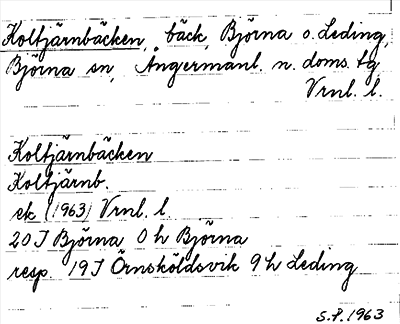 Koltjärnbäcken, bäck, Björna o. Leding,
Björna sn, Ångermanl. n. doms. tg
Vrnl. l.
Koltjärnbäcken
Koltjärnb.
ek (1963) Vrnl. l.
20 J Björna 0 h Björna
resp. 19 J Örnsköldsvik 9 h Leding
S.P. 1963